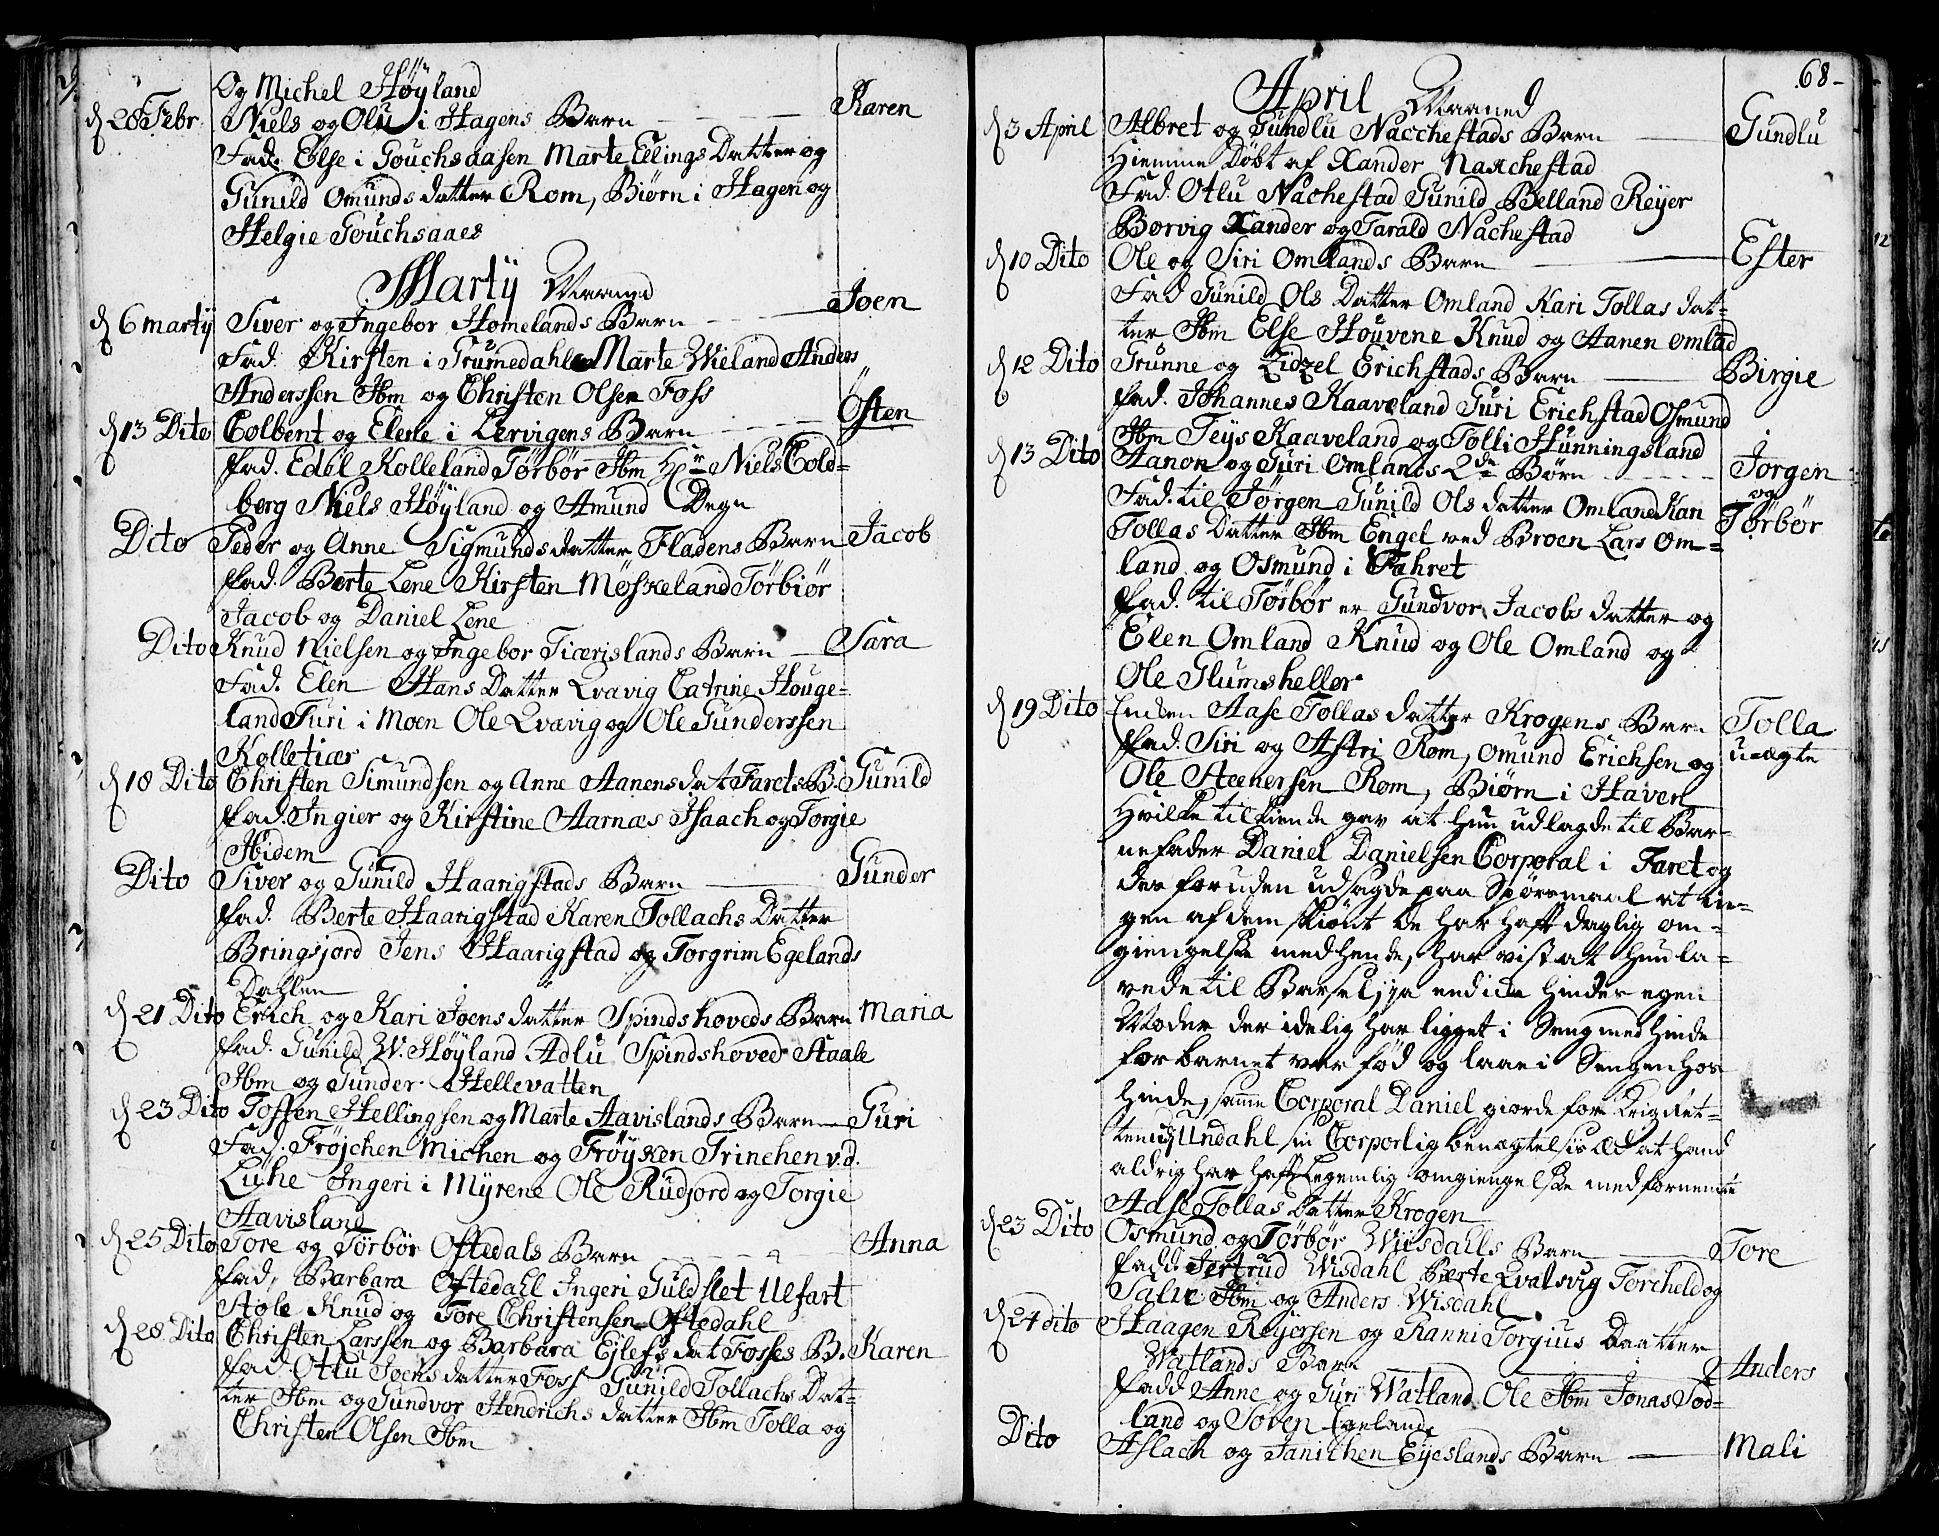 Og Michel Höyland
d 28 Febr. Niels og Olu i Hagens Barn Karen
Fad. Else i Gouchsaasen Marte Ellings Datter og
Gunild Omunds datter Rom, Biörn i Hagen og
Helgie Gouchsaaes
Martÿ Maaned
d 6 martÿ Siver og Ingebor Homelands Barn Joen
Fad. Kirsten i Trumedahl Marte Wieland Anders
Anderssen Ibm og Christen Olsen Foss
d 13 Dito Colbent og Elene i Lervigens Barn Östen
Fad. Edel Kolleland Törbör Ibm Hr Niels Cold=
berg Niels Höÿland og Amund Degn
Dito Peder og Anne Sigmunds datter Fladens Barn Jacob
Fad. Berte Lene Kirsten Möskeland Törbiör
Jacob og Daniel Lene
Dito Knud Nielsen og Ingebor Ticerislands Barn Sara
Fad. Elen Hans Datter Qvavig Catrine Houge=
land Turi i Moen Ole Qvavig og Ole Gunderssen
Kolletiær
d 18 Dito Christen Simundsen og Anne Aanens dat Farets B. Gunild
Fad. Ingier og Kirstine Aarnæs Isaach og Torgie
Ibidem
Dito Siver og Gunild Haarigstads Barn Gunder
Fad. Berte Haarigstad Karen Tollachs Datter
Bringsjord Jens Haarigstad og Torgrim Egelands
Dahlen
d 21 Dito Erich og Kari Joens datter Spindshoveds Barn Maria
Fad. Gunild W. Höyland Adlu Spindshoved Staale
Ibm og Gunder Hellevatten
d 23 Dito Toffen Hellingsen og Marte Aavislands Barn Guri
Fad. Fröjchen Michen og Fröÿken Trinchen v.d.
Luhe Ingeri i Mÿrene Ole Rudjord og Torgie
Aavisland
d 25 Dito Tore og Törbör Oftedals Barn Anna
Fad, Barbara Oftedahl Ingeri Guldslet Ulfart
Stole Knud og Tore Christensen Oftedahl
d 28 Dito Christen Larssen og Barbara Ejlefs dat Fosses B. Karen
Fad. Otlu Joens datter Foss Gunild Tollachs Dat=
ter Ibm og Gundvor Hendrichs datter Ibm Tolla og
Christen Olsen Ibm
68
April Maaned
d 3 April Albret og Gundlu Nacchestads Barn Gundlu
Hiemme Döbt af Xander Nacchestad
Fad. Otlu Nachestad Gunild Belland Reÿer
Borvig Xander og Tarald Nachestad
d 10 Dito Ole og Siri Omlands Barn Ester
Fad Gunild Ols Datter Omland Kari Tollas dat=
ter Ibm Else Houvene Knud og Aanen Omlad
d 12 Dito Trunne og Zidzel Erichstads Barn Birgie
Fad. Johannes Kaaveland Guri Erichstad Osmund
Ibm Teÿs Kaaveland og Tolli Hunningsland
d 13 Dito Aanon og Guri Omlands 2de Børn Jorgen
og
Fad. til Jörgen Gunild Ols datter Omland Kari Törbör
Tollas Datter Ibm Engel ved Broen Lars Om=
land og Osmund i Fahret
Fad. til Törbör er Gundvor Jacobs datter og
Elen Omland Knud og Ole Omland og
Ole Glumsheller
d 19 Dito Aase Tollas datter Krogens Barn Tolla
Fad. Siri og Astri Rom, Omund Erichsen og uægte
Ole Steenersen Rom, Biörn i Haven
Hvilke tilkiende gav at hun udlagde til Bar=
nefader Daniel Danielsen Corporal i Faret og
des foruden udsagde paa Spörsmaal at in=
gen af dem skiönt de har haft daglig om=
giengelse med hende, har vist at hun la=
vede til Barsel, ja end icke hindes egen
Moder der idelig har ligget i Seng med hinde
for barnet var fød og laae i Sengen hos
hinde, samme Corporal Daniel giorde for Krigsret=
ten Undahl sin Corporlig benægtelsis Æd at hand
aldrig har haft Legemlig omgiengelse med fornemte
Aase Tollas Datter Krogen
d 23 Dito Osmund og Törbör Wiisdahls Barn Tore
Fadd. Jertrud Wisdahl Berte Qvalsvig Torcheld og
Salve Ibm og Anders Wisdahl
d 24 dito Haagen Reÿersen og Ranni Torgius Daatter
Watlands Barn Anders
Fadd Anne og Guri Watland Ole Ibm Jonas Sod=
land og Soven Egeland
Dito Aslach og Janichen Eÿeslands Barn Mali